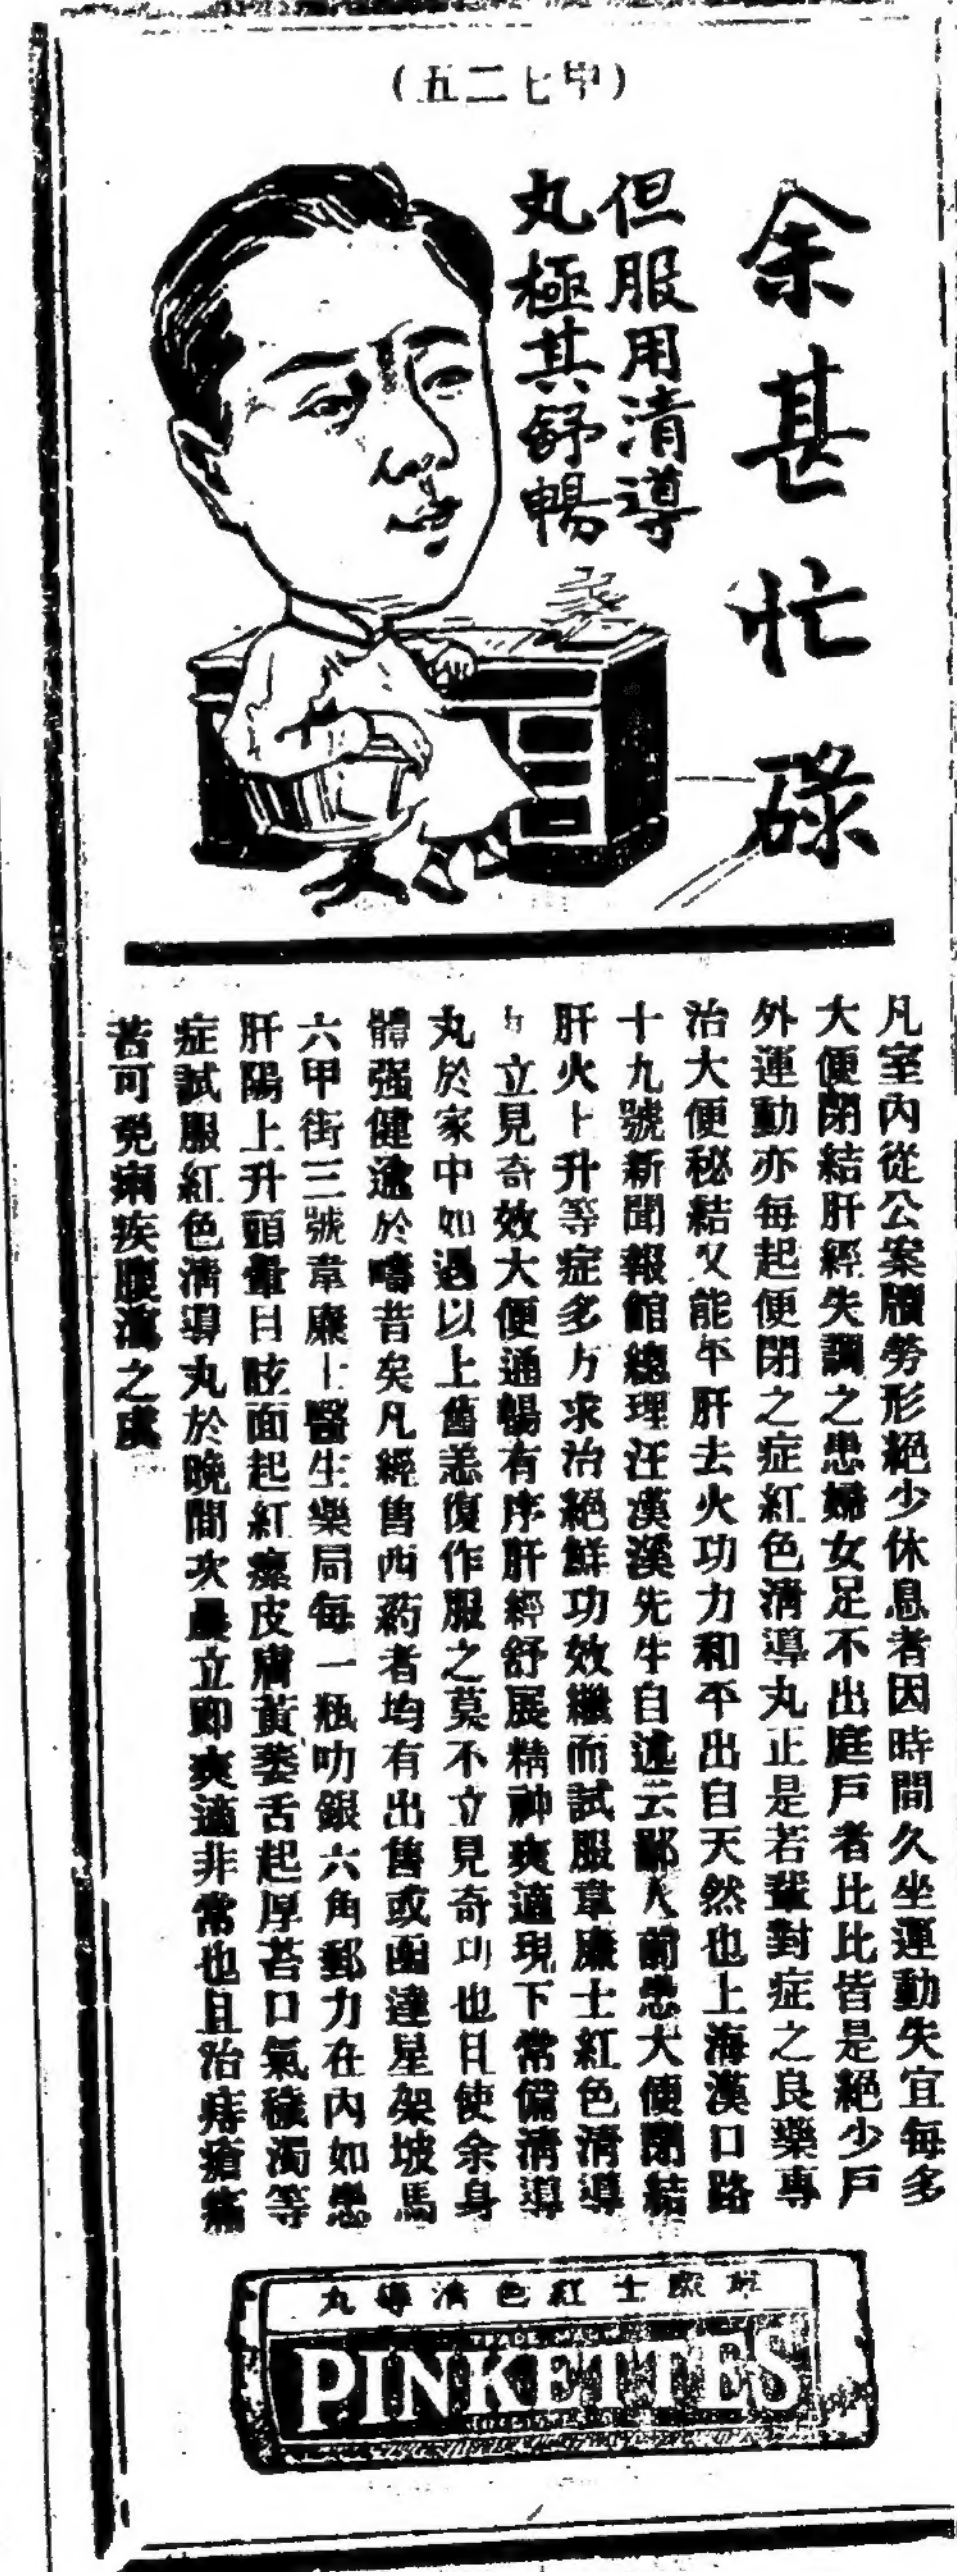 (五二七甲)
余甚忙碌
但服用清導
丸極其舒暢
凡室內從公案牘勞形絕少休息者因時間久坐運動失宜每多
大便閉結肝經失調之患婦女足不出庭戶者比比皆是絕少戶
外運動亦每起便閉之症紅色清導丸正是若輩對症之良藥專
治大便秘結又能平肝去火功力和平出自天然也上海漢口路
十九號新聞報館總理汪漢溪先生自述云鄙人前患大便閉結
肝火上升等症多方求治絕鮮功效繼而試服韋廉士紅色清導
立見奇效大便通暢有序肝經舒展精神爽適現下常備清導
丸於家中如遇以上舊恙復作服之莫不立見奇功也且使余身
體强健逾於疇昔矣凡經售西药者均有出售或函達星架坡馬
六甲街三號韋廉士醫生藥局每一瓶叻銀六角郵力在內如患
肝陽上升頭暈目眩面起紅瘰皮膚黃萎舌起厚苔口氣穢濁等
症試服紅色清導丸於晚間次晨立即爽適非常也且治痔瘡痛
苦可免痢疾腹瀉之虞
丸導清色紅士廉韋
PINKETTES